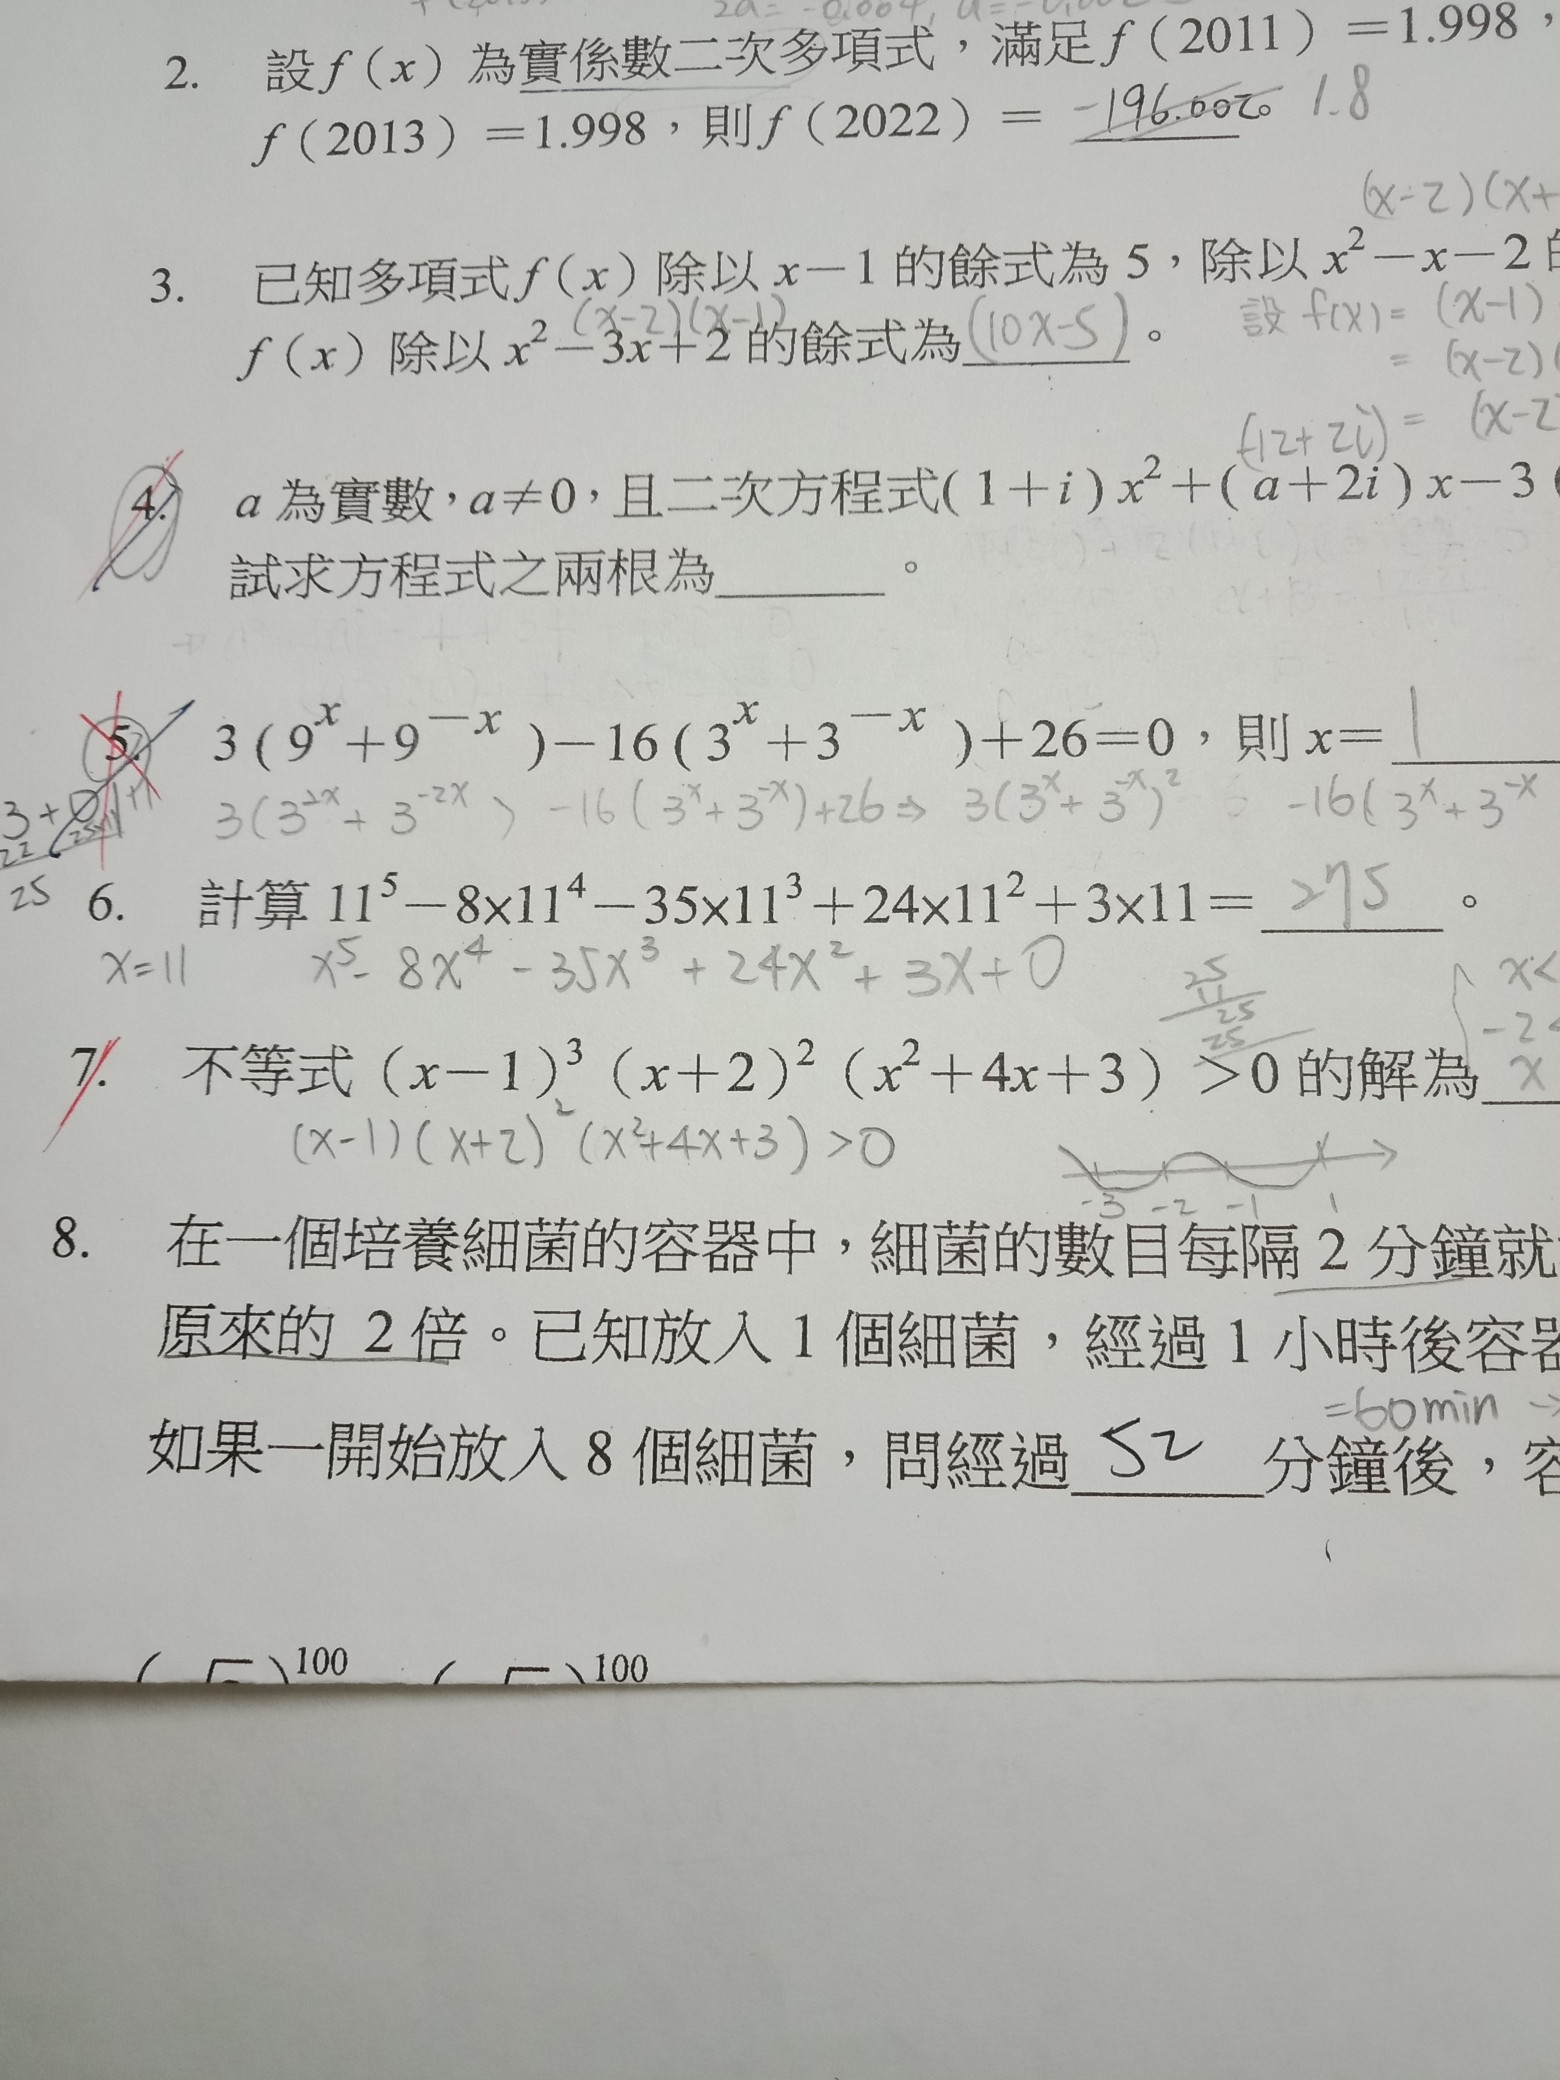 2a= -0.004,
2. 設f(x)為實係數二次多項式,滿足f(2011)=1.998,
f(2013)=1.998,則f(2022)= -196.002。 1.8
(x-2)(x+
3. 已知多項式f(x)除以x-1的餘式為5,除以x²-x-2的
(x-2)(x-1) 設 f(x)= (x-1)
f(x)除以x²-3x+2的餘式為(10x-5)。
= (x-2)(
(-12+2i) = (x-2
4. a為實數,a≠0,且二次方程式(1+i)x²+(a+2i)x-3(
試求方程式之兩根為______。
5. 3(9^x+9^-x)-16(3^x+3^-x)+26=0,則x= 1
3(3^2x+3^-2x) -16(3^x+3^-x)+26⇒ 3(3^x+3^-x)² -16(3^x+3^-x
25
6. 計算11⁵-8×11⁴-35×11³+24×11²+3×11= 275。
x=11 x⁵-8x⁴-35x³+24x²+3x+0
x<
-2<
7. 不等式(x-1)³(x+2)²(x²+4x+3)>0的解為 x
(x-1)(x+2)²(x²+4x+3)>0
-3 -2 -1 1
8. 在一個培養細菌的容器中,細菌的數目每隔2分鐘就
原來的2倍。已知放入1個細菌,經過1小時後容器
=60min →
如果一開始放入8個細菌,問經過 52 分鐘後,容
100 100